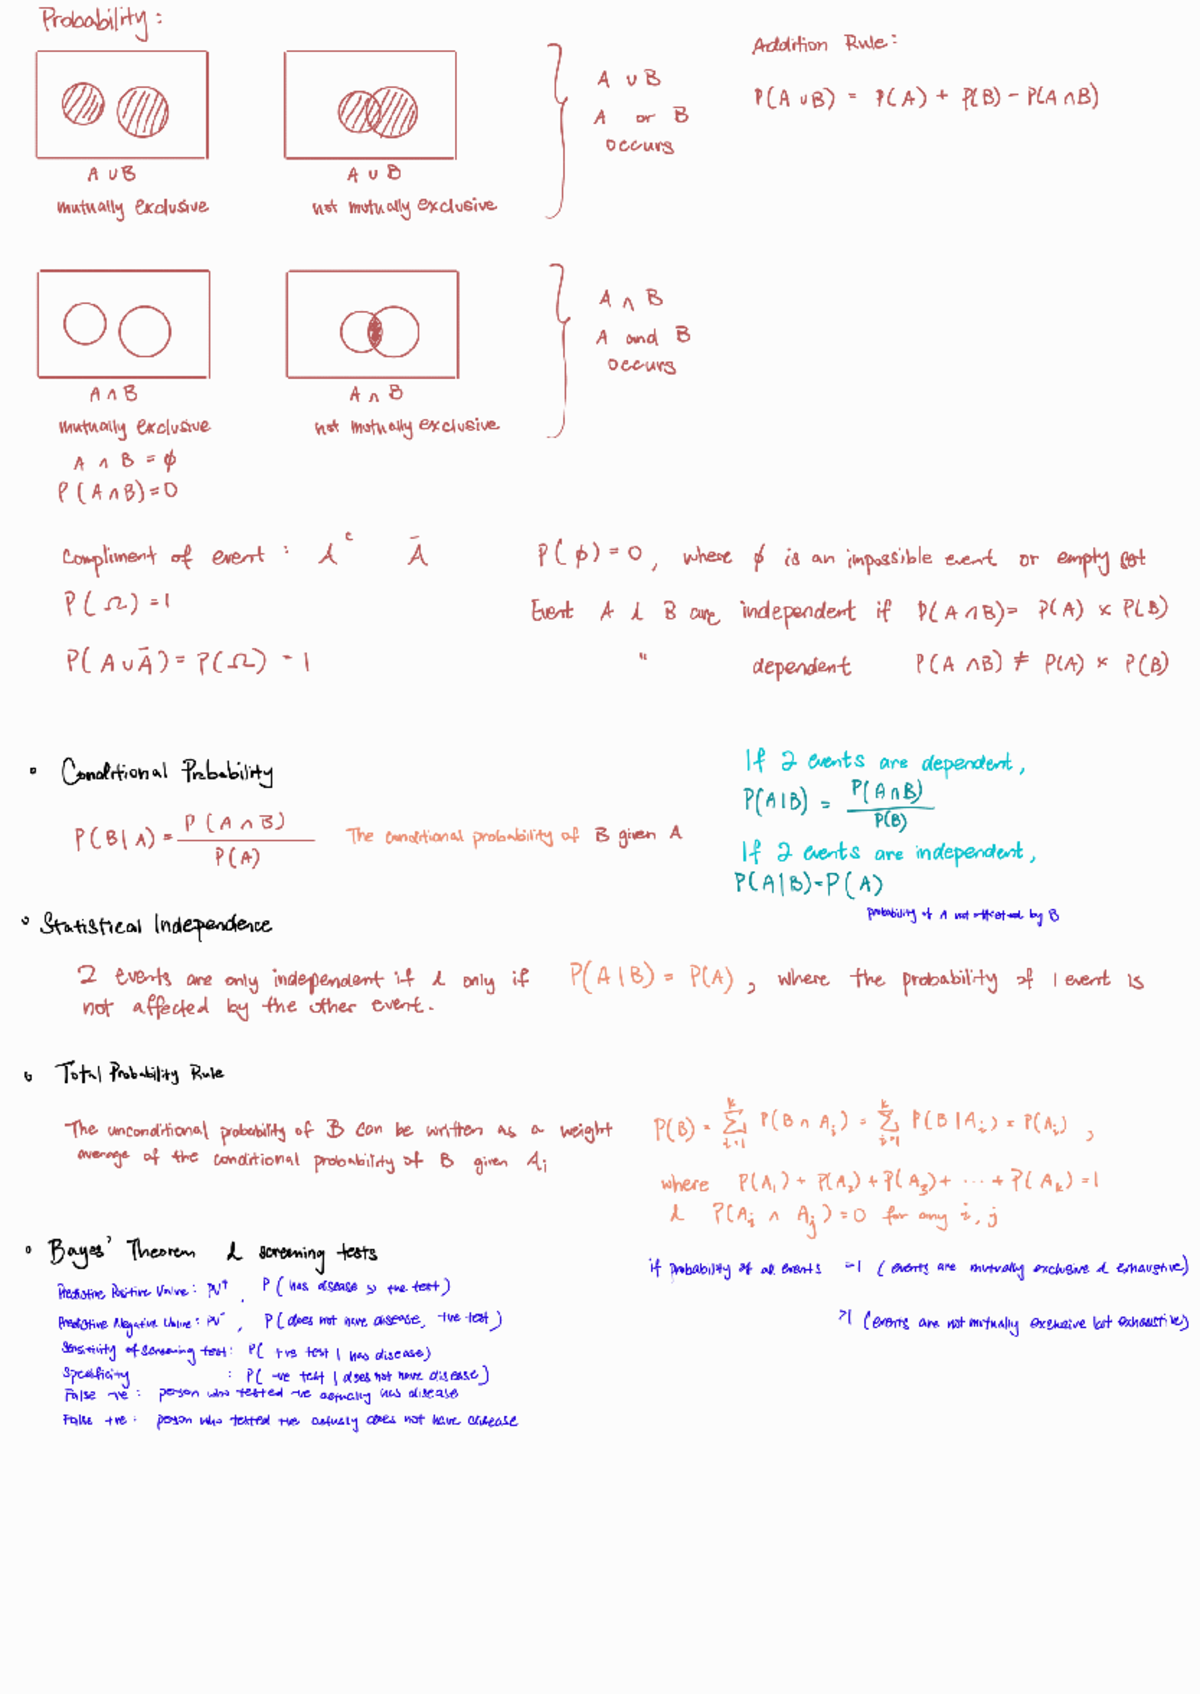 Probability:
Addition Rule:
P(A ∪ B) = P(A) + P(B) - P(A ∩ B)
A ∪ B
mutually exclusive
A ∪ B
not mutually exclusive
A ∪ B
A or B
occurs
A ∩ B
mutually exclusive
A ∩ B = ϕ
P(A ∩ B) = 0
A ∩ B
not mutually exclusive
A ∩ B
A and B
occurs
Compliment of event : Aᶜ Ā
P(Ω) = 1
P(A ∪ Ā) = P(Ω) = 1
P(ϕ) = 0, where ϕ is an impossible event or empty set
Event A & B are independent if P(A ∩ B) = P(A) × P(B)
" dependent P(A ∩ B) ≠ P(A) × P(B)
Conditional Probability
P(B|A) = P(A ∩ B) / P(A) The conditional probability of B given A
If 2 events are dependent,
P(A|B) = P(A ∩ B) / P(B)
If 2 events are independent,
P(A|B) = P(A)
probability of A not affected by B
Statistical Independence
2 events are only independent if & only if P(A|B) = P(A), where the probability of 1 event is
not affected by the other event.
Total Probability Rule
The unconditional probability of B can be written as a weight
average of the conditional probability of B given Ai
P(B) = Σ(i=1 to k) P(B ∩ Ai) = Σ(i=1 to k) P(B|Ai) × P(Ai),
where P(A₁) + P(A₂) + P(A₃) + ... + P(Ak) = 1
& P(Ai ∩ Aj) = 0 for any i, j
Bayes' Theorem & screening tests
Predictive Positive Value: PV⁺, P(has disease, +ve test)
Predictive Negative Value: PV⁻, P(does not have disease, -ive test)
Sensitivity of screening test: P(+ve test | has disease)
Specificity : P(-ve test | does not have disease)
False -ve: person who tested -ve actually has disease
False +ve: person who tested +ve actually does not have disease
if probability of all events =1 (events are mutually exclusive & exhaustive)
>1 (events are not mutually exclusive but exhaustive)